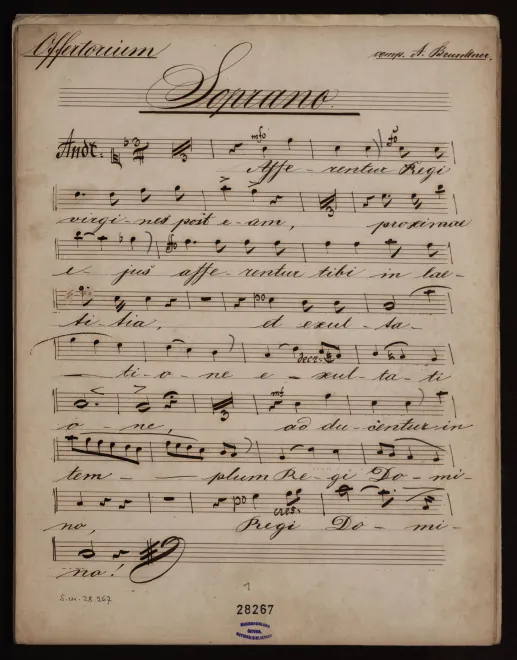 Offertorium
comp. A. Brunner.
Soprano.
Andt:
mfo
Affe - rentur Regi
virgi - nes post e - am, proximae
e - jus affe - rentur tibi in lae -
ti - tia, et exul - ta -
decr.
ti - o - ne e - xul - ta - ti
mf
o - ne, ad du - centur in
tem - plum Re - gi Do - mi -
po cres.
no, Regi Do - mi -
no!
S.m. 28 267
1
28267